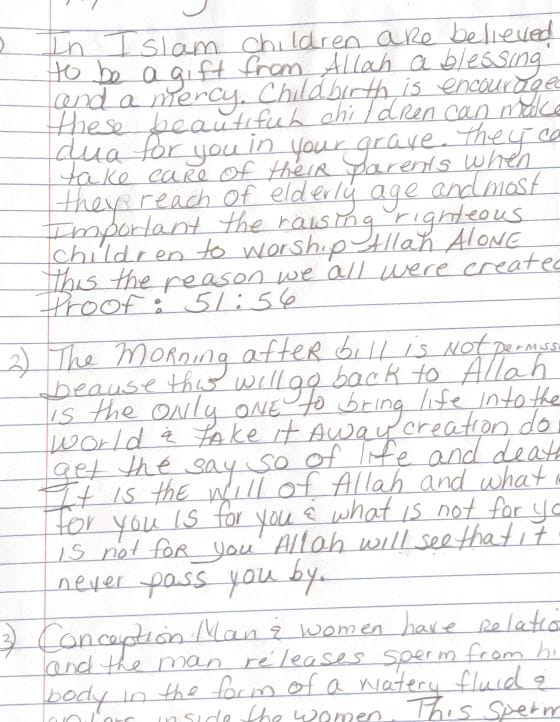 In Islam children are believed
to be a gift from Allah a blessing
and a mercy. Childbirth is encourage
these beautiful children can make
dua for you in your grave. They ca
take care of their parents when
they reach of elderly age and most
Important the raising righteous
children to worship Allah AlONE
This the reason we all were create
Proof : 51:56
2) The Morning after bill is NOT permiss
beause this will go back to Allah
is the ONly ONE to bring life into the
World & take it Away creation do
get the say so of life and deat
It is the will of Allah and what
for you is for you & what is not for yo
is not for you Allah will see that it
never pass you by.
3) Conception Man & women have relatio
and the man releases sperm from hi
body in the form of a watery fluid &
inside the women. This Sperm